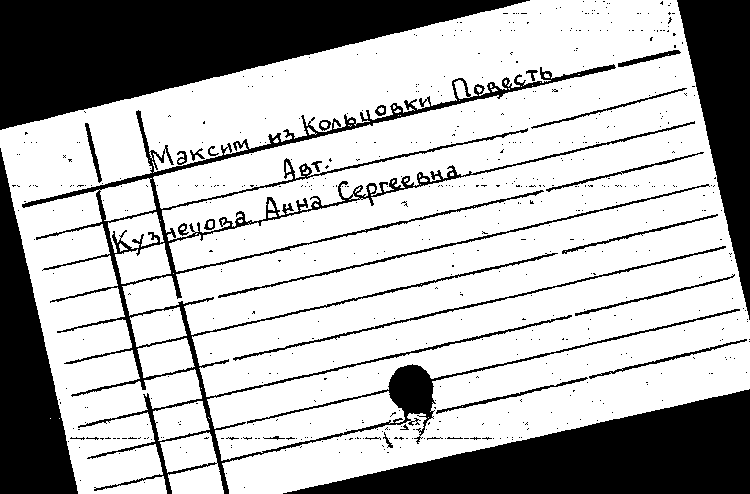 Максим из Кольцовки Повесть.
Авт.:
Кузнецова, Анна Сергеевна.